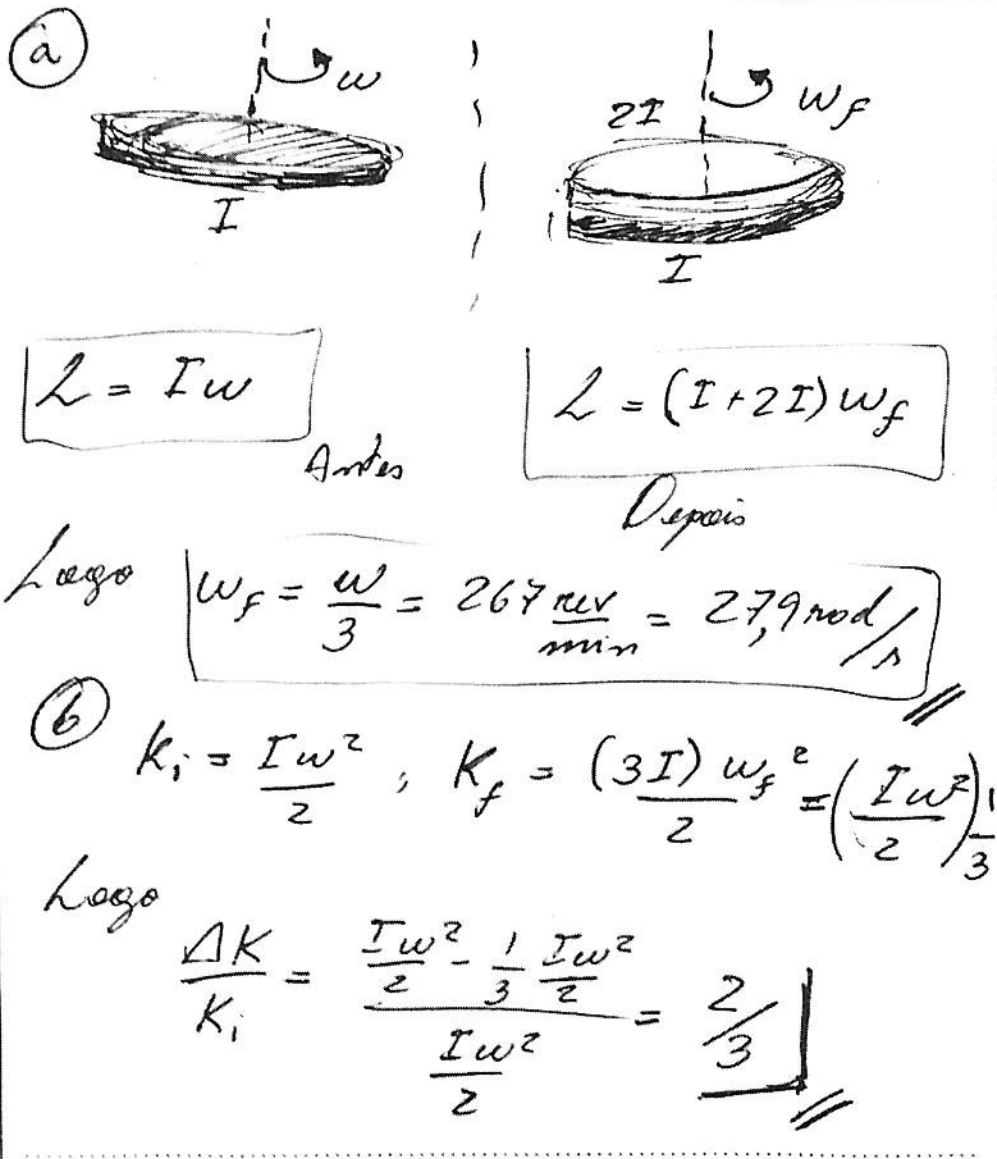 a
ω ω_f
2I
I I
L = Iω L = (I+2I)ω_f
Antes Depois
Logo ω_f = ω/3 = 267 rev/min = 27,9 rad/s
b K_i = Iω²/2 , K_f = (3I)ω_f²/2 = (Iω²/2) 1/3
Logo
ΔK/K_i = (Iω²/2 - 1/3 Iω²/2)/(Iω²/2) = 2/3